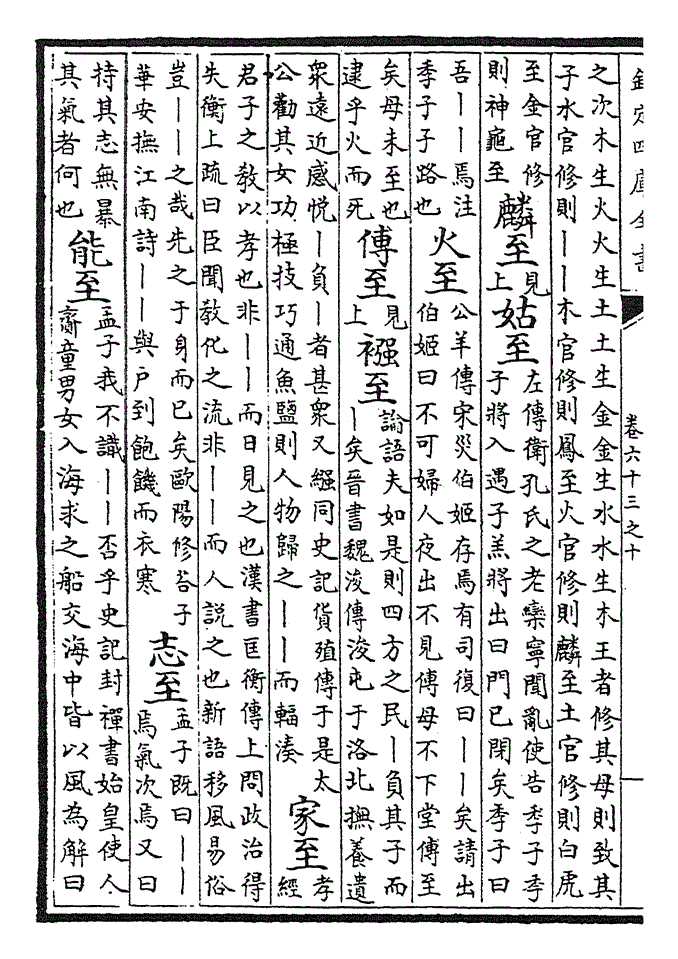 欽定四庫全書
卷六十三之十
一
之次木生火火生土土生金金生水水生木王者修其母則致其
子水官修則丨丨木官修則鳳至火官修則麟至土官修則白虎
至金官修
則神龜至
麟至
見
上
姑至
左傳衛孔氏之老欒寧聞亂使告季子季
子將入遇子羔將出曰門已閉矣季子曰
吾丨丨焉注
季子子路也
火至
公羊傳宋災伯姬存焉有司復曰丨丨矣請出
伯姬曰不可婦人夜出不見傅母不下堂傅至
矣母未至也
逮乎火而死
傅至
見
上
襁至
論語夫如是則四方之民丨負其子而
丨矣晉書魏浚傳浚屯于洛北撫養遺
衆遠近感悅丨負丨者甚衆又繦同史記貨殖傳于是太
公勸其女功極技巧通魚鹽則人物歸之丨丨而輻湊
家至
孝
經
君子之教以孝也非丨丨而日見之也漢書匡衡傳上問政治得
失衡上疏曰臣聞教化之流非丨丨而人說之也新語移風易俗
豈丨丨之哉先之于身而已矣歐陽修答子
華安撫江南詩丨丨與戶到飽饑而衣寒
志至
孟子既曰丨丨
焉氣次焉又曰
持其志無暴
其氣者何也
能至
孟子我不識丨丨否乎史記封禪書始皇使人
齋童男女入海求之船交海中皆以風為解曰